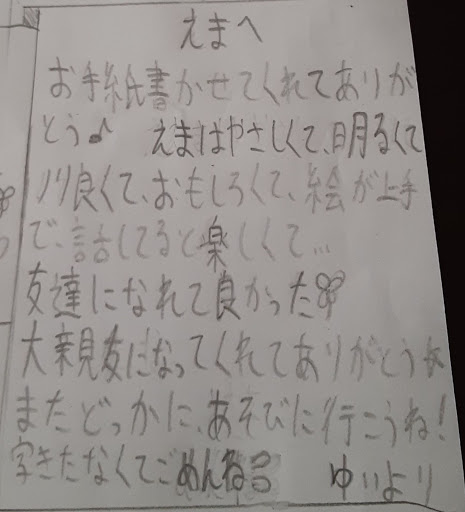 えまへ
お手紙書かせてくれてありが
とう♪ えまはやさしくて、明るくて
ノリ良くて、おもしろくて、絵が上手
で、話してると楽しくて…
友達になれて良かった
大親友になってくれてありがとうね
またどっかに、あそびに行こうね!
字きたなくてごめんね
ゆいより